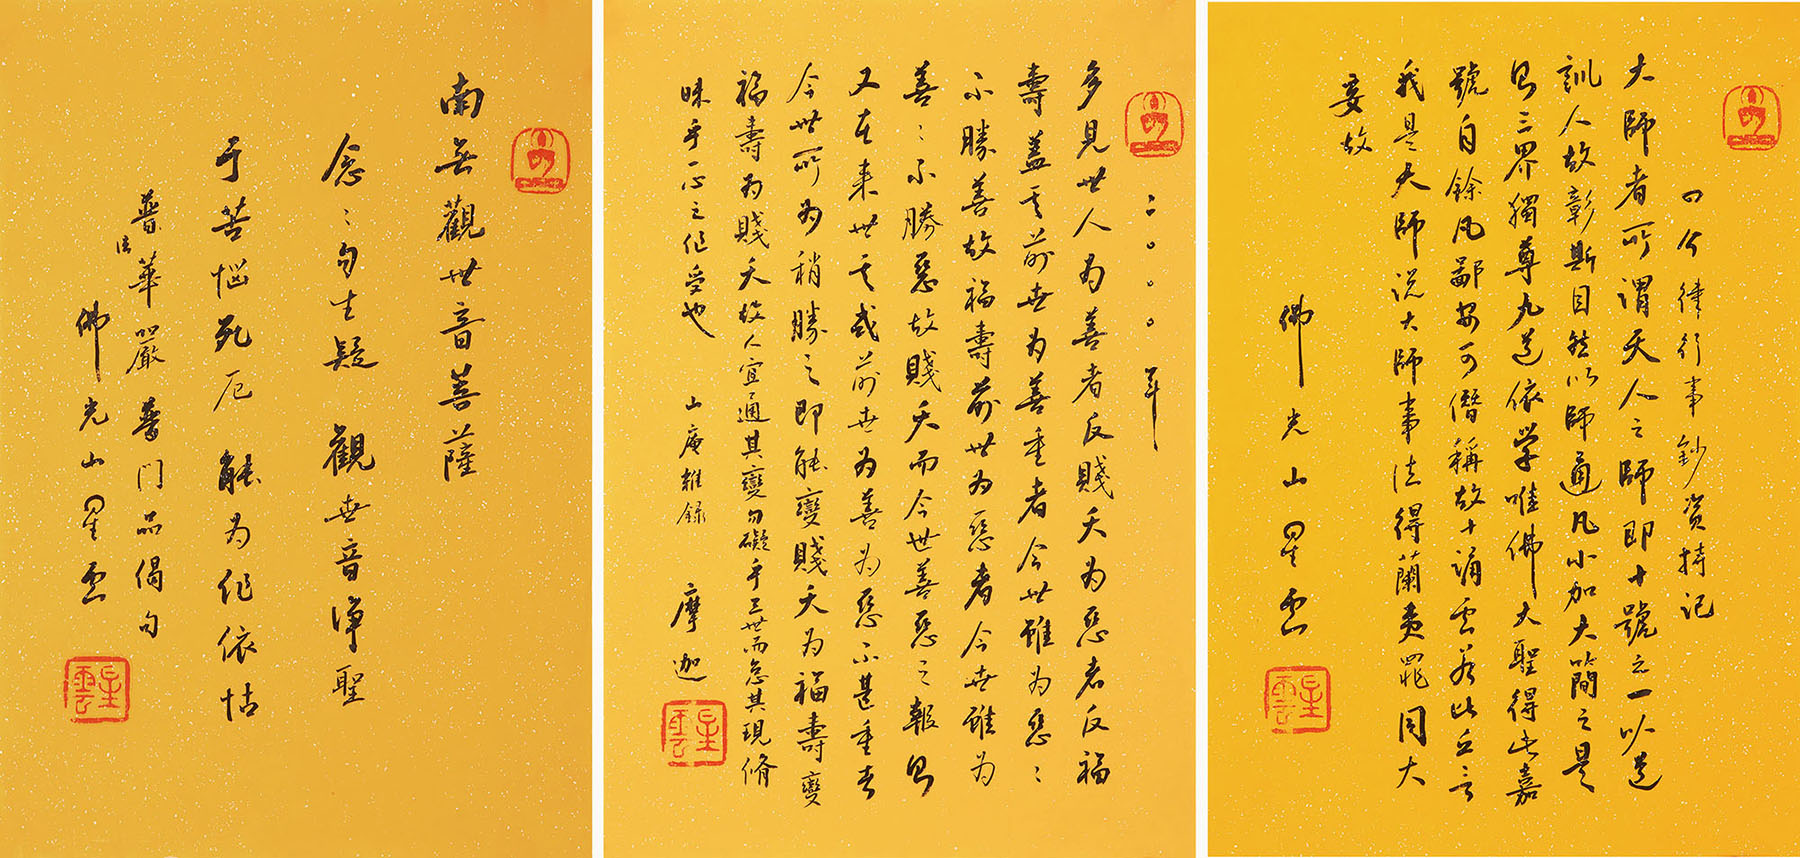 四分律行事鈔資持記
大師者所謂天人之師即十號之一以道
訓人故彰斯目然以師通凡小加大簡之是
則三界獨尊九道依學唯佛大聖得此嘉
號自餘凡鄙安可僭稱故十誦云若比丘言
我是大師說大師事法得蘭夷罪同大
妄故
佛光山星雲
星雲
二〇〇〇年
多見世人為善者反賤夭為惡者反福
壽蓋其前世為善重者今世雖為惡〻
不勝善故福壽前世為惡者今世雖為
善〻不勝惡故賤夭而今世善惡之報則
又在來世其或前世為善為惡不甚重者
今世所為稍勝之即能變賤夭為福壽變
福壽為賤夭故人宜通其變勿礙乎三世而怠其現脩
昧乎一心之作受也 山庵雜錄 摩迦
星雲
南無觀世音菩薩
念〻勿生疑 觀世音淨聖
于苦惱死厄 能為作依怙
普法華嚴普門品偈句
佛光山星雲
星雲